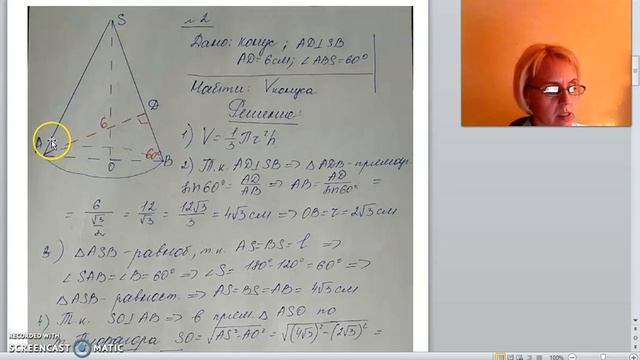 № 2
Дано: конус; AD⊥SB
AD=6см; ∠ABS=60°
Найти: Vконуса
Решение:
1) V=1/3 Пr²h
2) Т.к. AD⊥SB ⇒ △ADB-прямоуг
sin60°=AD/AB ⇒ AB=AD/sin60° =
= 6/(√3/2) = 12/√3 = 12√3/3 = 4√3 см ⇒ OB=r=2√3 см
3) △ASB-равноб, т.к. AS=BS=l ⇒
∠SAB=∠B=60° ⇒ ∠S= 180°-120°=60° ⇒
△ASB-равност. ⇒ AS=BS=AB= 4√3 см
4) Т.к. SO⊥AB ⇒ в прям. △ ASO по
т. Пифагора SO=√(AS²-AO²) = √((4√3)²-(2√3)²) =
S
6
D
A
O
60°
B
RECORDED WITH
SCREENCAST MATIC
100%